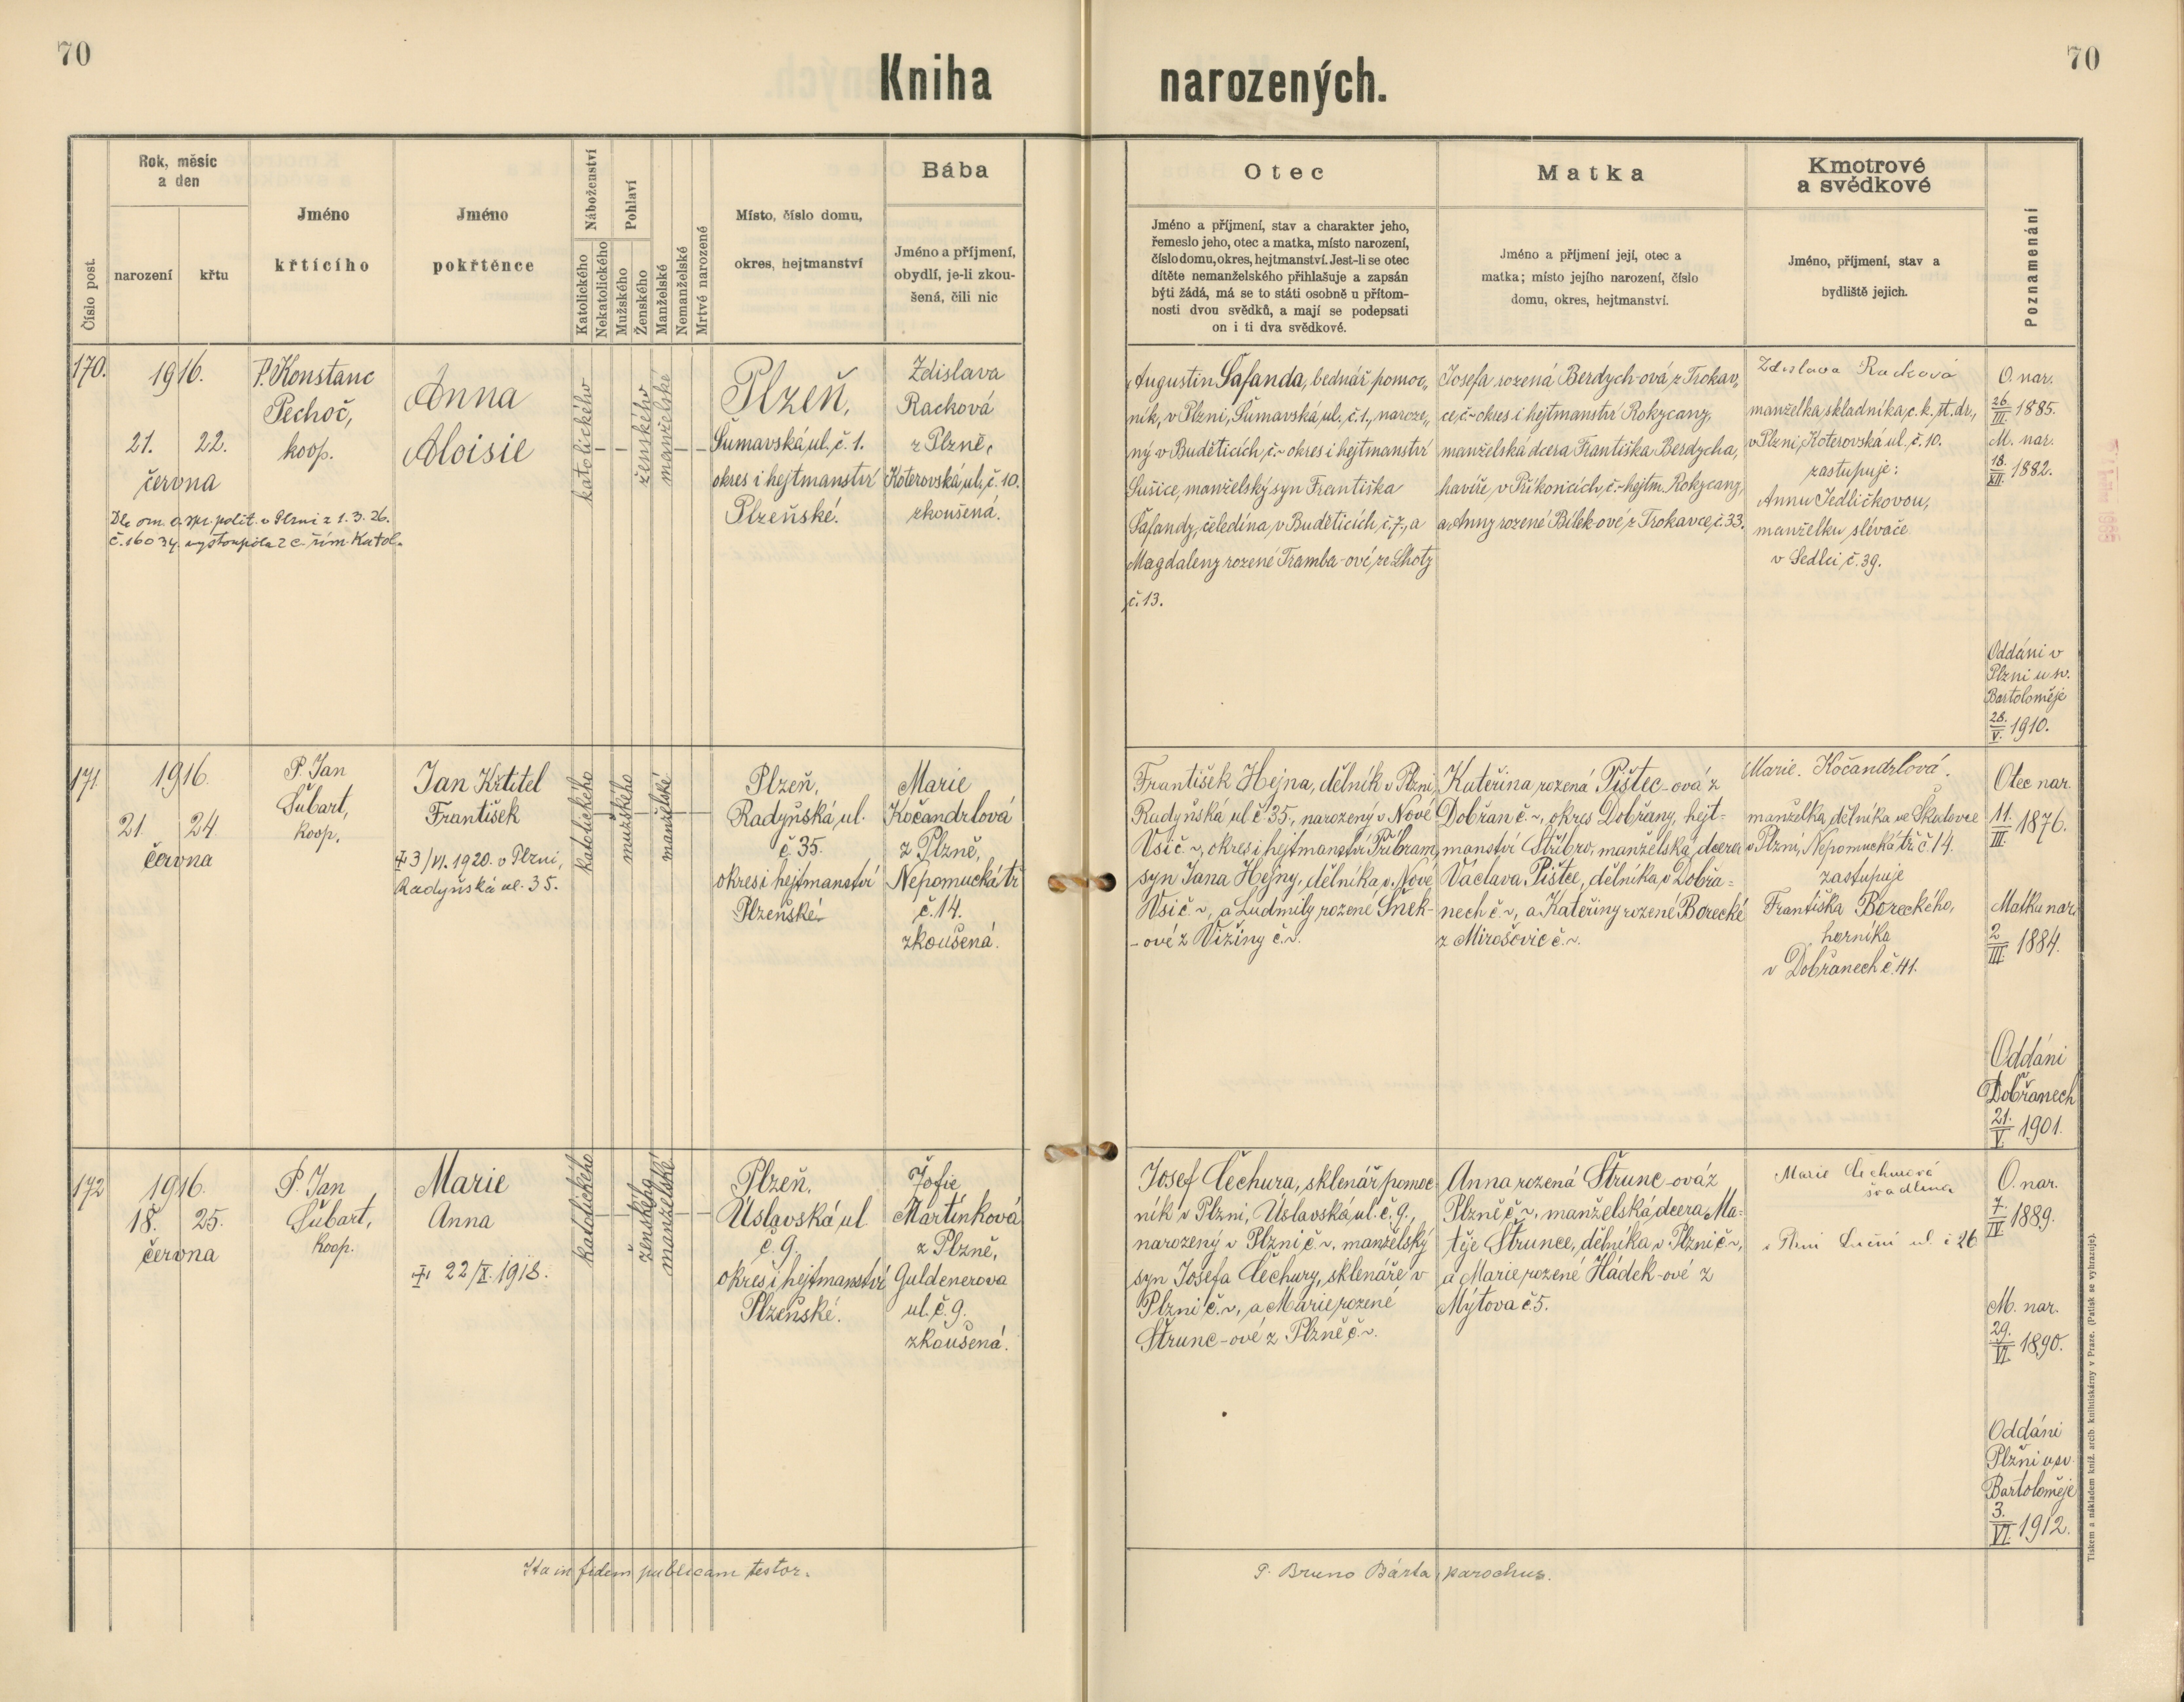 70
70
Kniha narozených.
Číslo post.
Rok, měsíc
a den
narození
křtu
Jméno
křtícího
Jméno
pokřtěnce
Náboženství
Katolického
Nekatolického
Pohlaví
Mužského
Ženského
Manželské
Nemanželské
Mrtvě narozené
Místo, číslo domu,
okres, hejtmanství
Bába
Jméno a příjmení,
obydlí, je-li zkou-
šená, čili nic
Otec
Jméno a příjmení, stav a charakter jeho,
řemeslo jeho, otec a matka, místo narození,
číslo domu, okres, hejtmanství. Jest-li se otec
dítěte nemanželského přihlašuje a zapsán
býti žádá, má se to státi osobně u přítom-
nosti dvou svědků, a mají se podepsati
on i ti dva svědkové.
Matka
Jméno a příjmení její, otec a
matka; místo jejího narození, číslo
domu, okres, hejtmanství.
Kmotrové
a svědkové
Jméno, příjmení, stav a
bydliště jejich.
Poznamenání
170.
1916.
21. 22.
června
Dle ozn. o. spr. polit. v Plzni z 1.3.26.
č. 16034. vystoupila z c. řím. katol.
P. Konstanc
Pechoč,
koop.
Anna
Aloisie
katolického
ženského
manželské
Plzeň,
Šumavská ul., č. 1.
okres i hejtmanství
Plzeňské.
Zdislava
Racková
z Plzně,
Koterovská ul., č. 10.
zkoušená.
Augustin Šafanda, bednář. pomoc„
ník, v Plzni, Šumavská ul., č. 1., naroze„
ný v Buděticích, č. ~ okres i hejtmanství
Sušice, manželský syn Františka
Šafandy, čeledína, v Buděticích, č. 7., a
Magdaleny rozené Tramba-ové, ze Lhoty
č. 13.
Josefa rozená Berdych-ová, z Trokav„
ce, č. ~ okres i hejtmanství Rokycany,
manželská dcera Františka Berdycha,
havíře, v Příkosicích, č. ~ hejtm. Rokycany,
a Anny rozené Bílek-ové, z Trokavce, č. 33.
Zdislava Racková
manželka skladníka, c. k. st. dr.,
v Plzni, Koterovská ul., č. 10.
zastupuje:
Annu Jedličkovou,
manželku slévače
v Sedlci, č. 39.
O. nar.
26./III. 1885.
M. nar.
18./XII. 1882.
Oddáni v
Plzni u sv.
Bartoloměje
28./V. 1910.
171
1916.
21. 24.
června
P. Jan
Šubart,
koop.
Jan Křtitel
František
✝ 3/VI. 1920. v Plzni,
Radyňská ul. 35.
katolického
mužského
manželské
Plzeň,
Radyňská ul.
č. 35.
okres i hejtmanství
Plzeňské.
Marie
Kočandrlová
z Plzně,
Nepomucká tř.
č. 14.
zkoušená.
František Hejna, dělník v Plzni,
Radyňská ul. č. 35., narozený v Nové
Vsi č. ~, okres i hejtmanství Příbram,
syn Jana Hejny, dělníka v Nové
Vsi č. ~, a Ludmily rozené Šnek-
-ové z Vižiny č. ~.
Kateřina rozená Pištec-ová z
Dobřan č. ~, okres Dobřany, hejt-
manství Stříbro, manželská dcera
Václava Pištce, dělníka v Dobřa-
nech č. ~, a Kateřiny rozené Borecké
z Mirošovic č. ~.
Marie Kočandrlová.
manželka dělníka ve Škodovce
v Plzni, Nepomucká tř. č. 14.
zastupuje
Františka Boreckého,
horníka
v Dobřanech č. 41.
Otec nar.
11./III. 1876.
Matka nar.
2./III. 1884.
Oddáni
v Dobřanech
21./V. 1901.
172
1916.
18. 25.
června
P. Jan
Šubart,
koop.
Marie
Anna
✝ 22/X. 1918.
katolického
ženského
manželské
Plzeň,
Úslavská ul
č. 9.
okres i hejtmanství
Plzeňské.
Žofie
Martínková
z Plzně,
Guldenerova
ul. č. 9.
zkoušená.
Josef Čechura, sklenář. pomoc
ník v Plzni, Úslavská ul. č. 9.,
narozený v Plzni č. ~, manželský
syn Josefa Čechury, sklenáře v
Plzni č. ~, a Marie rozené
Štrunc-ové z Plzně č. ~.
Anna rozená Štrunc-ová z
Plzně č. ~, manželská dcera Ma-
těje Štrunce, dělníka v Plzni č. ~,
a Marie rozené Hádek-ové z
Mýtova č. 5.
Marie Čechurová
švadlena
v Plzni Luční ul. č 26
O. nar.
7./IV 1889.
M. nar.
29./VI. 1890.
Oddáni
Plzni u sv.
Bartoloměje
3./VI. 1912.
Ita in fidem publicam testor.
P. Bruno Bárta, parochus.
Tiskem a nákladem kníž. arcib. knihtiskárny v Praze. (Patisk se vyhrazuje).